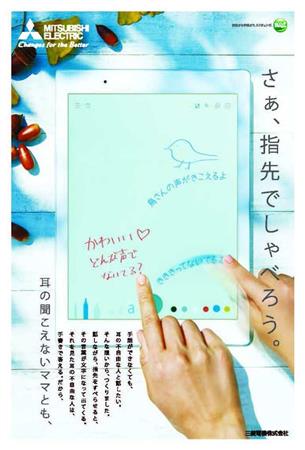 MITSUBISHI
ELECTRIC
Changes for the Better
さぁ、指先でしゃべろう。
鳥さんの声がきこえるよ
かわいい♡
どんな声で
ないてる?
きききってないてるよ
耳の聞こえないママとも、
手話ができなくても、
耳の不自由な人と話したい。
そんな想いから、つくりました。
話しながら、指先をすべらせると、
その言葉が文字になって出てくる。
それを見た耳の不自由な人は、
手書きで答える。だから、
三菱電機株式会社